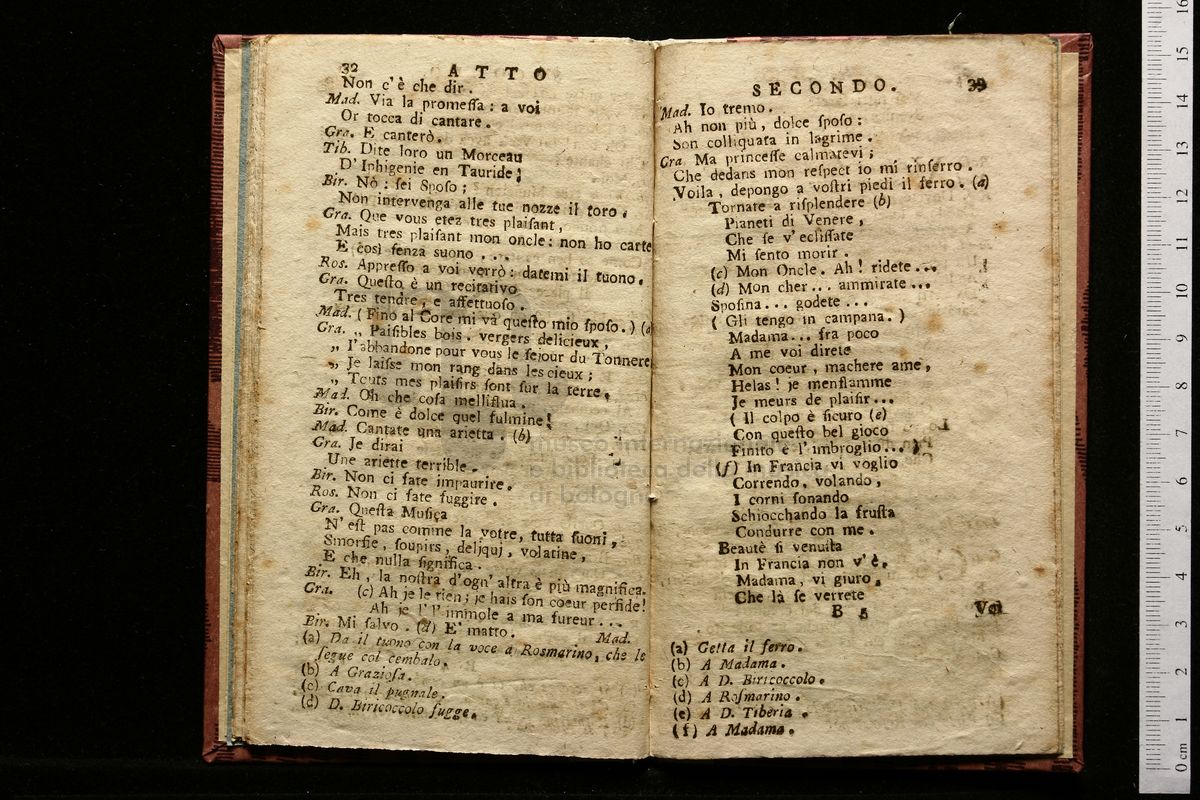 32 ATTO
Non c'è che dir.
Mad. Via la promeſſa: a voi
Or tocca di cantare.
Gra. E canterò.
Tib. Dite loro un Morceau
D'Iphigenie en Tauride;
Bir. Nò: ſei Spoſo;
Non intervenga alle tue nozze il toro.
Gra. Que vous etez tres plaiſant,
Mais tres plaiſant mon oncle: non ho carte
E così ſenza suono ....
Ros. Appreſſo a voi verrò: datemi il tuono.
Gra. Queſto è un recitativo
Tres tendre, e affettuoſo.
Mad. (Fino al Core mi và queſto mio ſpoſo.) (a
Gra. „ Paiſibles bois. vergers delicieux,
„ I'abbandone pour vous le ſejour du Tonnere
„ Je laiſse mon rang dans les cieux;
„ Touts mes plaiſirs ſont ſur la terre.
Mad. Oh che coſa melliflua.
Bir. Come è dolce quel fulmine!
Mad. Cantate una arietta. (b)
Gra. Je dirai
Une ariette terrible.
Bir. Non ci fate impaurire.
Ros. Non ci fate fuggire.
Gra. Queſta Muſica
N'eſt pas comme la votre, tutta ſuoni,
Smorfie, ſoupirs, deljquj, volatine,
E che nulla ſignifica.
Bir. Eh, la noſtra d'ogn'altra è più magnifica.
Gra. (c) Ah je le tien; je hais ſon coeur perfide!
Ah je l'l'immole a ma fureur...
Bir. Mi ſalvo. (d) E' matto.
Mad.
(a) Da il tuono con la voce a Rosmarino, che le
ſegue col cembalo.
(b) A Grazioſa.
(c) Cava il pugnale.
(d) D. Biricoccolo fugge.
SECONDO. 33
Mad. Io tremo.
Ah non più, dolce ſpoſo:
Son colliquata in lagrime.
Gra Ma princeſſe calmatevi;
Che dedans mon reſpect io mi rinſerro.
Voila, depongo a voſtri piedi il ferro. (a)
Tornate a riſplendere (b)
Pianeti di Venere,
Che ſe v'ecliſſate
Mi ſento morir.
(c) Mon Oncle. Ah! ridete...
(d) Mon cher... ammirate...
Spoſina... godete...
( Gli tengo in campana. )
Madama... fra poco
A me voi direte
Mon coeur, machere ame,
Helas! je menflamme
Je meurs de plaiſir...
( Il colpo è ſicuro (e)
Con queſto bel gioco
Finito è l'imbroglio... )
(f) In Francia vi voglio
Correndo, volando,
I corni ſonando
Schiocchando la fruſta
Condurre con me.
Beautè ſi venuſta
In Francia non v'è.
Madama, vi giuro,
Che là ſe verrete
B 5 Voi
(a) Getta il ferro.
(b) A Madama.
(c) A D. Biricoccolo.
(d) A Roſmarino.
(e) A D. Tiberia.
(f) A Madama.
museo internazionale
e biblioteca della
di bologna
0 cm 1 2 3 4 5 6 7 8 9 10 11 12 13 14 15 16